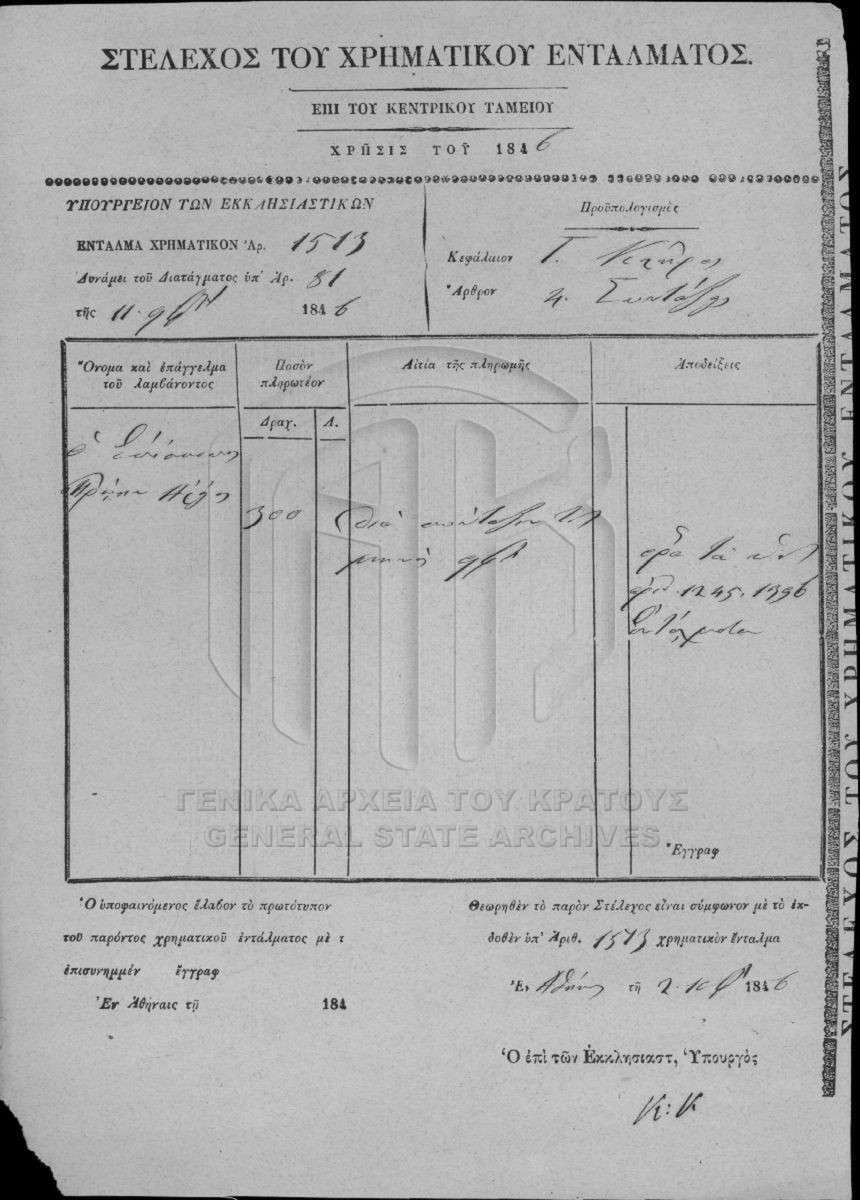 ΣΤΕΛΕΧΟΣ ΤΟΥ ΧΡΗΜΑΤΙΚΟΥ ΕΝΤΑΛΜΑΤΟΣ.
ΕΠΙ ΤΟΥ ΚΕΝΤΡΙΚΟΥ ΤΑΜΕΙΟΥ
ΧΡΗΣΙΣ ΤΟΥ 1846
ΥΠΟΥΡΓΕΙΟΝ ΤΩΝ ΕΚΚΛΗΣΙΑΣΤΙΚΩΝ
ΕΝΤΑΛΜΑ ΧΡΗΜΑΤΙΚΟΝ Ἀρ. 1513
Δυνάμει τοῦ Διατάγματος ὑπ' Ἀρ. 81
τῆς 11 1846
Προϋπολογισμὸς
Κεφάλαιον Γ.
Ἄρθρον 4. Συντάξεις
Ὄνομα καὶ ἐπάγγελμα
τοῦ λαμβάνοντος
Ποσὸν
πληρωτέον
Δραχ. Λ.
Αἰτία τῆς πληρωμῆς
Ἀποδείξεις
ὁ Ἐπίσκοπος
300
διὰ σύνταξιν
ὅρα τὰ
ἀρθ. 1245. 1396
ἐντάλματα
Ἔγγραφ
ΓΕΝΙΚΑ ΑΡΧΕΙΑ ΤΟΥ ΚΡΑΤΟΥΣ
GENERAL STATE ARCHIVES
Ὁ ὑποφαινόμενος ἔλαβον τὸ πρωτότυπον
τοῦ παρόντος χρηματικοῦ ἐντάλματος μὲ τ
ἐπισυνημμέν ἔγγραφ
Ἐν Ἀθήναις τῇ 184
Θεωρηθὲν τὸ παρὸν Στέλεχος εἶναι σύμφωνον μὲ τὸ ἐκ-
δοθὲν ὑπ' Ἀριθ. 1513 χρηματικὸν ἔνταλμα
Ἐν Ἀθήναις τῇ 2 1846
Ὁ ἐπὶ τῶν Ἐκκλησιαστ, Ὑπουργὸς
Κ: Κ
ΣΤΕΛΕΧΟΣ ΤΟΥ ΧΡΗΜΑΤΙΚΟΥ ΕΝΤΑΛΜΑΤΟΣ